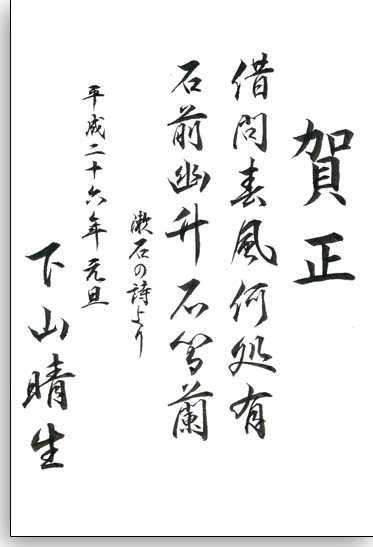 賀正
借問春風何処有
石前幽竹石間蘭
漱石の詩より
平成二十六年元旦
下山晴生